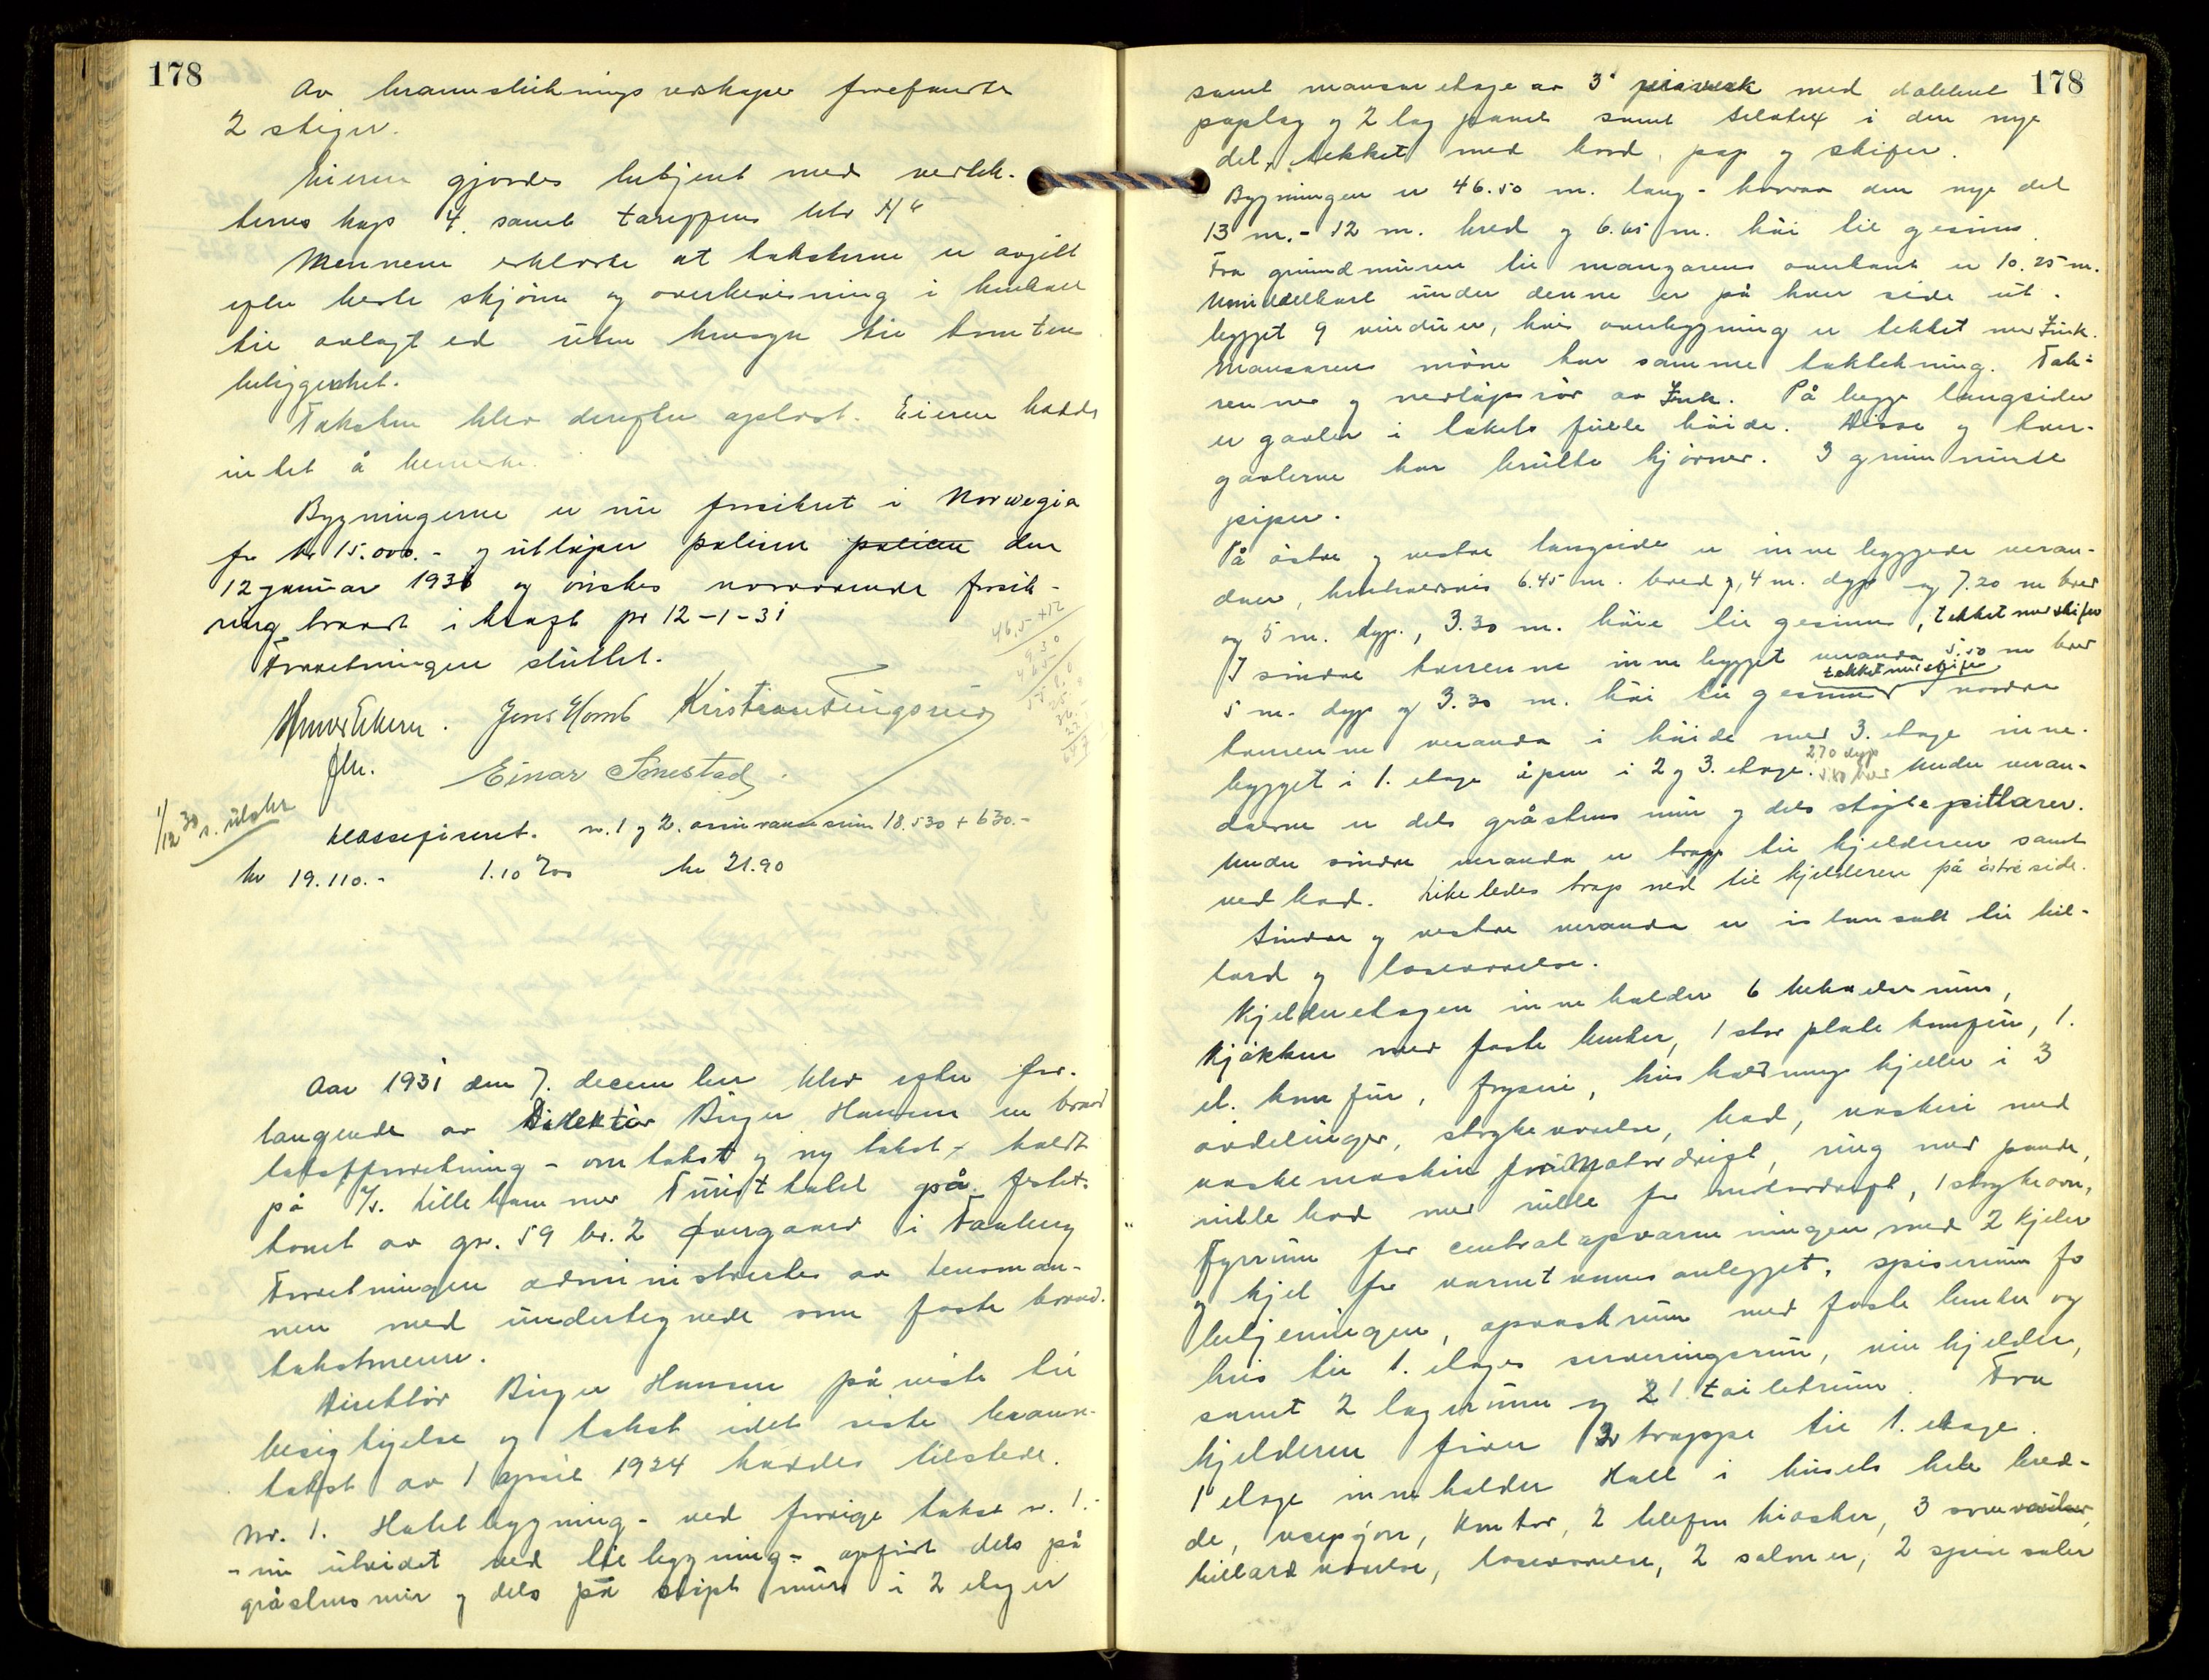 178
Av brannslukningsredskaper forefantes
2 stiger.
Eieren gjordes bekjent med vedtek-
ternes kap 4. samt tariffens litr H"
Mennene erklærte at taksterne er avgitt
efter beste skjönn og overbevisning i henhold
til avlagt ed uten hensyn til tomtens
beliggenhet.
Taksten blev derefter oplæst. Eieren hadde
intet å bemerke.
Bygningerne er nu forsikret i Norwegia
for kr 15.000.- og utlöper polisen policen den
12 januar 1931 og önskes nærværende forsik-
ring bragt i kraft pr 12-1-31
Forretningen sluttet.
Jens Homb Kristian Tingsrud
Einar Smestad
1/12 30 s. utskr
Klassefiseret. nr. 1 og 2. assurancesum 18.530 + 630.-
kr 19.110.- 1.10 ‰ kr 21.90
Aar 1931 den 7. december blev efter for-
langende av Direktör Birger Hansen en brand
takstforretning - omtakst og ny takst - holdt
på A/S. Lillehammer Turisthotel på feste-
tomt av gnr. 59 br. 2 Övergaard i Faaberg
Forretningen administrertes av lensman-
nen med undertegnede som faste brand-
takstmenn.
Direktör Birger Hansen påviste til
besigtigelse og takst idet siste brann-
takst av 1 april 1924 haddes tilstede.
Nr. 1. Hotelbygning - ved forrige takst nr. 1.-
- nu utvidet ved tilbygning - opfört dels på
gråstensmur og dels på stöpt mur i 2 etager
178
samt mansaretage av 3" reisverk med dobbelt
paplag og 2 lag panel samt telotex i den nye
del, tekket med bord, pap og skifer.
Bygningen er 46.50 m. lang - hvorav den nye del
13 m. - 12 m. bred og 6.65 m. höi til gesims
Fra grundmuren til mansarens overkant er 10.25 m.
Umiddelbart under denne er på hver side ut-
bygget 9 vinduer, hvis overbygning er tekket med Zink.
Mansarens möne har samme taktekning. Tak-
renner og nedlöpsrör av Zink. På begge langsider
er gavler i takets fulle höide. Disse og tver-
gavlerne har brutte hjörner. 3 grunnmurte
piper.
På östre og vestre langside er innebyggede veran-
daer, henholdsvis 6.45 m. bred og 4 m. dyp og 7.20 m bred
og 5 m. dyp., 3.30 m. höie til gesims, tekket med skifer
I söndre tverrende innebygget veranda 5.50 m bred
5 m. dyp og 3.30 m. höi til gesims tekket med skifer I nordre
tverrende veranda i höide med 3. etage inne-
bygget i 1. etage åpen i 2 og 3. etage. 2.70 dyp Under veran-
daerne er dels gråstens mur og dels stöpte pillarer.
Under söndre veranda er trapp til kjelderen samt
vedbod. Likeledes trap ned til kjelderen på östre side.
Söndre og vestre veranda er istansatt til bil-
lard og læseværelse.
Kjelderetagen inneholder 6 beboelsesrum,
Kjökken med faste benker, 1 stor plate komfur, 1.
el. komfur, fryseri, husholdnings kjeller i 3
avdelinger, strykeværelse, bad, vaskeri med
vaskemaskin for motordrift, ring med pande,
rullebod med rulle for motordrift, 1 strykeovn,
Fyrrum for centralopvarmningen med 2 kjeler
og kjel for varmtvannsanlegget, spiserum for
betjeningen, opvaskrum med faste benker og
heis til 1. etages serveringsrum, vin kjelder,
samt 2 lagerrum og 2 toiletrum. Fra
kjelderen förer 3 trappe til 1. etage.
1 etage inneholder Hall i husets hele bred-
de, resepsjon, kontor, 2 telefon kiosker, 3 soveværelser,
billardværelse, læseværelse, 2 saloner, 2 spisesaler